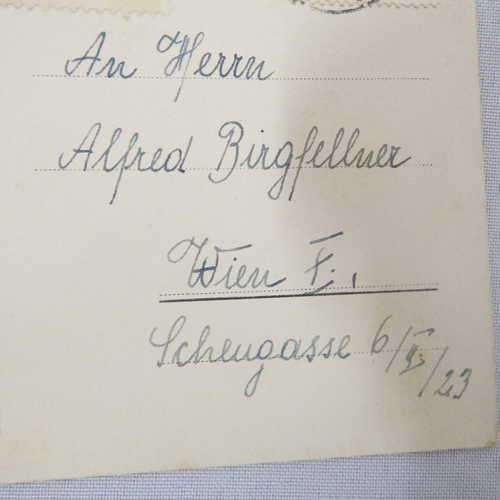 An Herrn
Alfred Birgfellner
Wien
Scheugasse 6/ /23